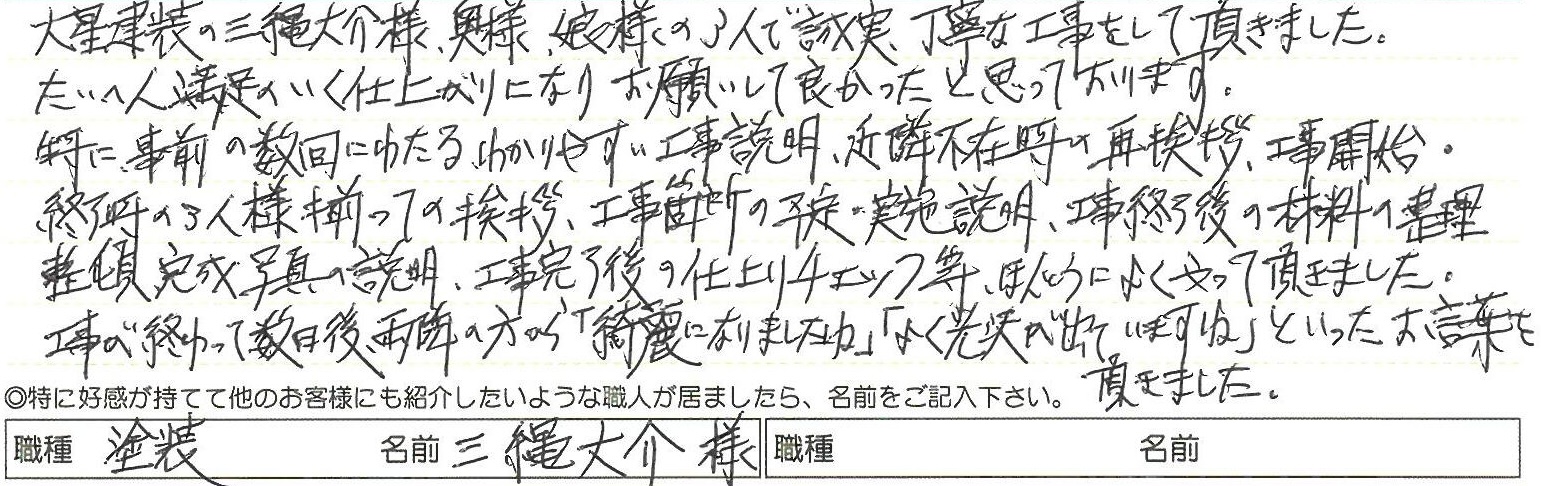 大星建装の三縄大介様、奥様、娘様の3人で誠実、丁寧な工事をして頂きました。
たいへん満足のいく仕上がりになりお願いして良かったと思っております。
特に、事前の数回にわたるわかりやすい工事説明、近隣不在時の再挨拶、工事開始・
終了時の3人様揃っての挨拶、工事箇所の予定・実施説明、工事終了後の材料の整理
整頓、完成写真の説明、工事完了後の仕上りチェック等、ほんとうによくやって頂きました。
工事が終わって数日後、両隣の方から「綺麗になりましたね」「よく光沢が出ていますね」といったお言葉を
頂きました。
◎特に好感が持てて他のお客様にも紹介したいような職人が居ましたら、名前をご記入下さい。
職種 塗装 名前 三縄大介 様 職種 名前